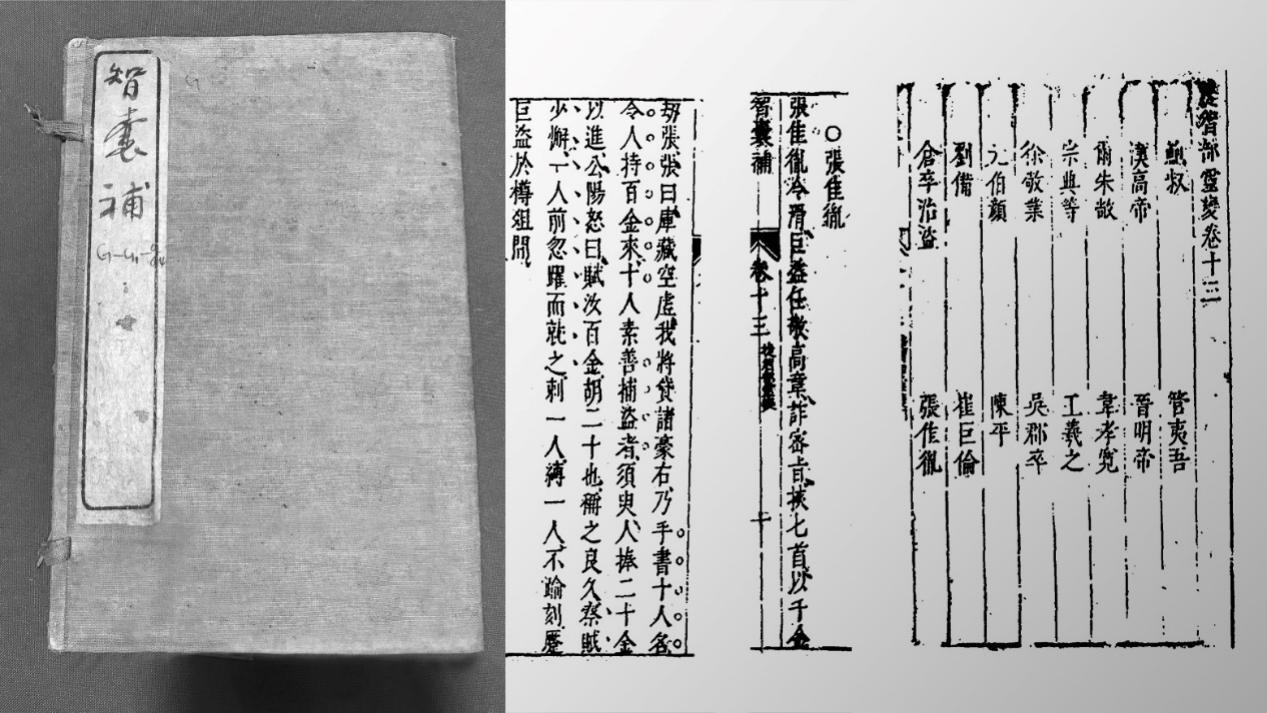 智囊補
捷智部靈變卷十三
鮑叔 管夷吾
漢高帝 晉明帝
爾朱敞 韋孝寬
宗典等 王羲之
徐敬業 吳郡卒
元伯顏 陳平
劉備 崔巨倫
倉卒治盜 張佳胤
○張佳胤
張佳胤令滑巨盜任敬高章詐密旨挾七首以千金
智囊補 卷十三 十
刼張張曰庫藏空虛我將貸諸豪右乃手書十人名
令人持百金來十人素善捕盜者須臾人捧二十金
以進公陽怒曰賦汝百金胡二十也稱之良久察賊
少懈一人前忽躍而就之刺一人縛一人不踰刻
巨盜於樽俎間